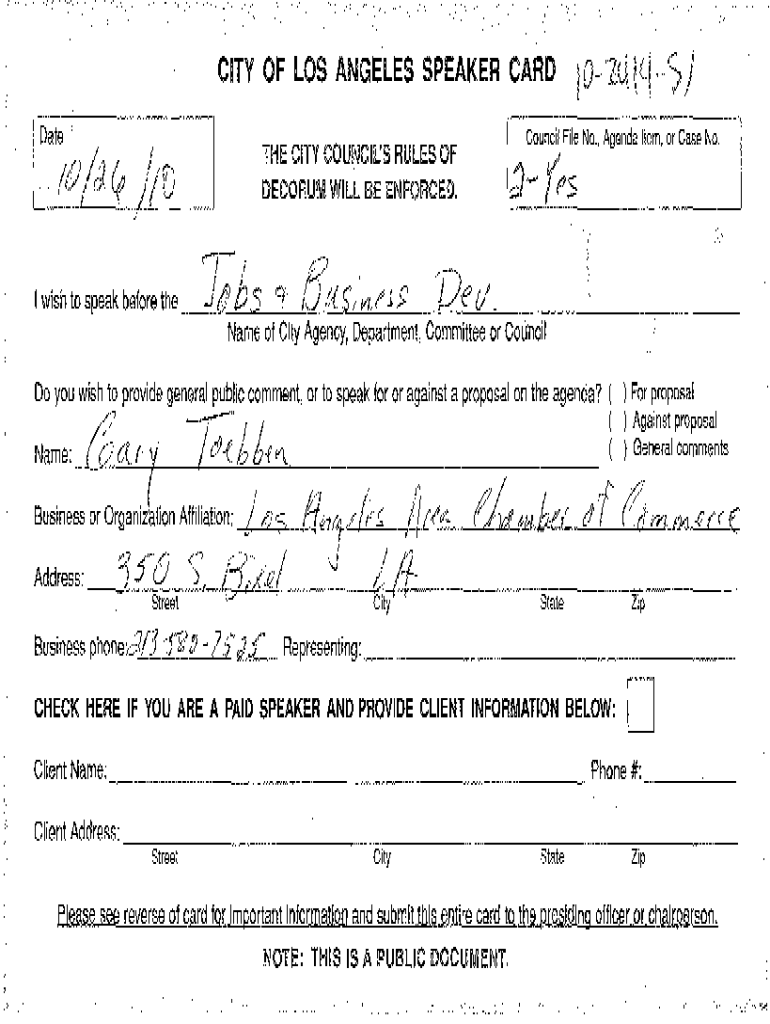 CITY OF LOS ANGELES SPEAKER CARD 10-2414-S1
Date
10/26/10
THE CITY COUNCIL'S RULES OF
DECORUM WILL BE ENFORCED.
Council File No., Agenda Item, or Case No.
2-Yes
I wish to speak before the Jobs & Business Dev.
Name of City Agency, Department, Committee or Council
Do you wish to provide general public comment, or to speak for or against a proposal on the agenda? ( ) For proposal
( ) Against proposal
( ) General comments
Name: Gary Toebben
Business or Organization Affiliation: Los Angeles Area Chamber of Commerce
Address: 350 S. Bixel LA
Street City State Zip
Business phone: 213-580-7525 Representing:
CHECK HERE IF YOU ARE A PAID SPEAKER AND PROVIDE CLIENT INFORMATION BELOW:
Client Name: Phone #:
Client Address:
Street City State Zip
Please see reverse of card for important information and submit this entire card to the presiding officer or chairperson.
NOTE: THIS IS A PUBLIC DOCUMENT.